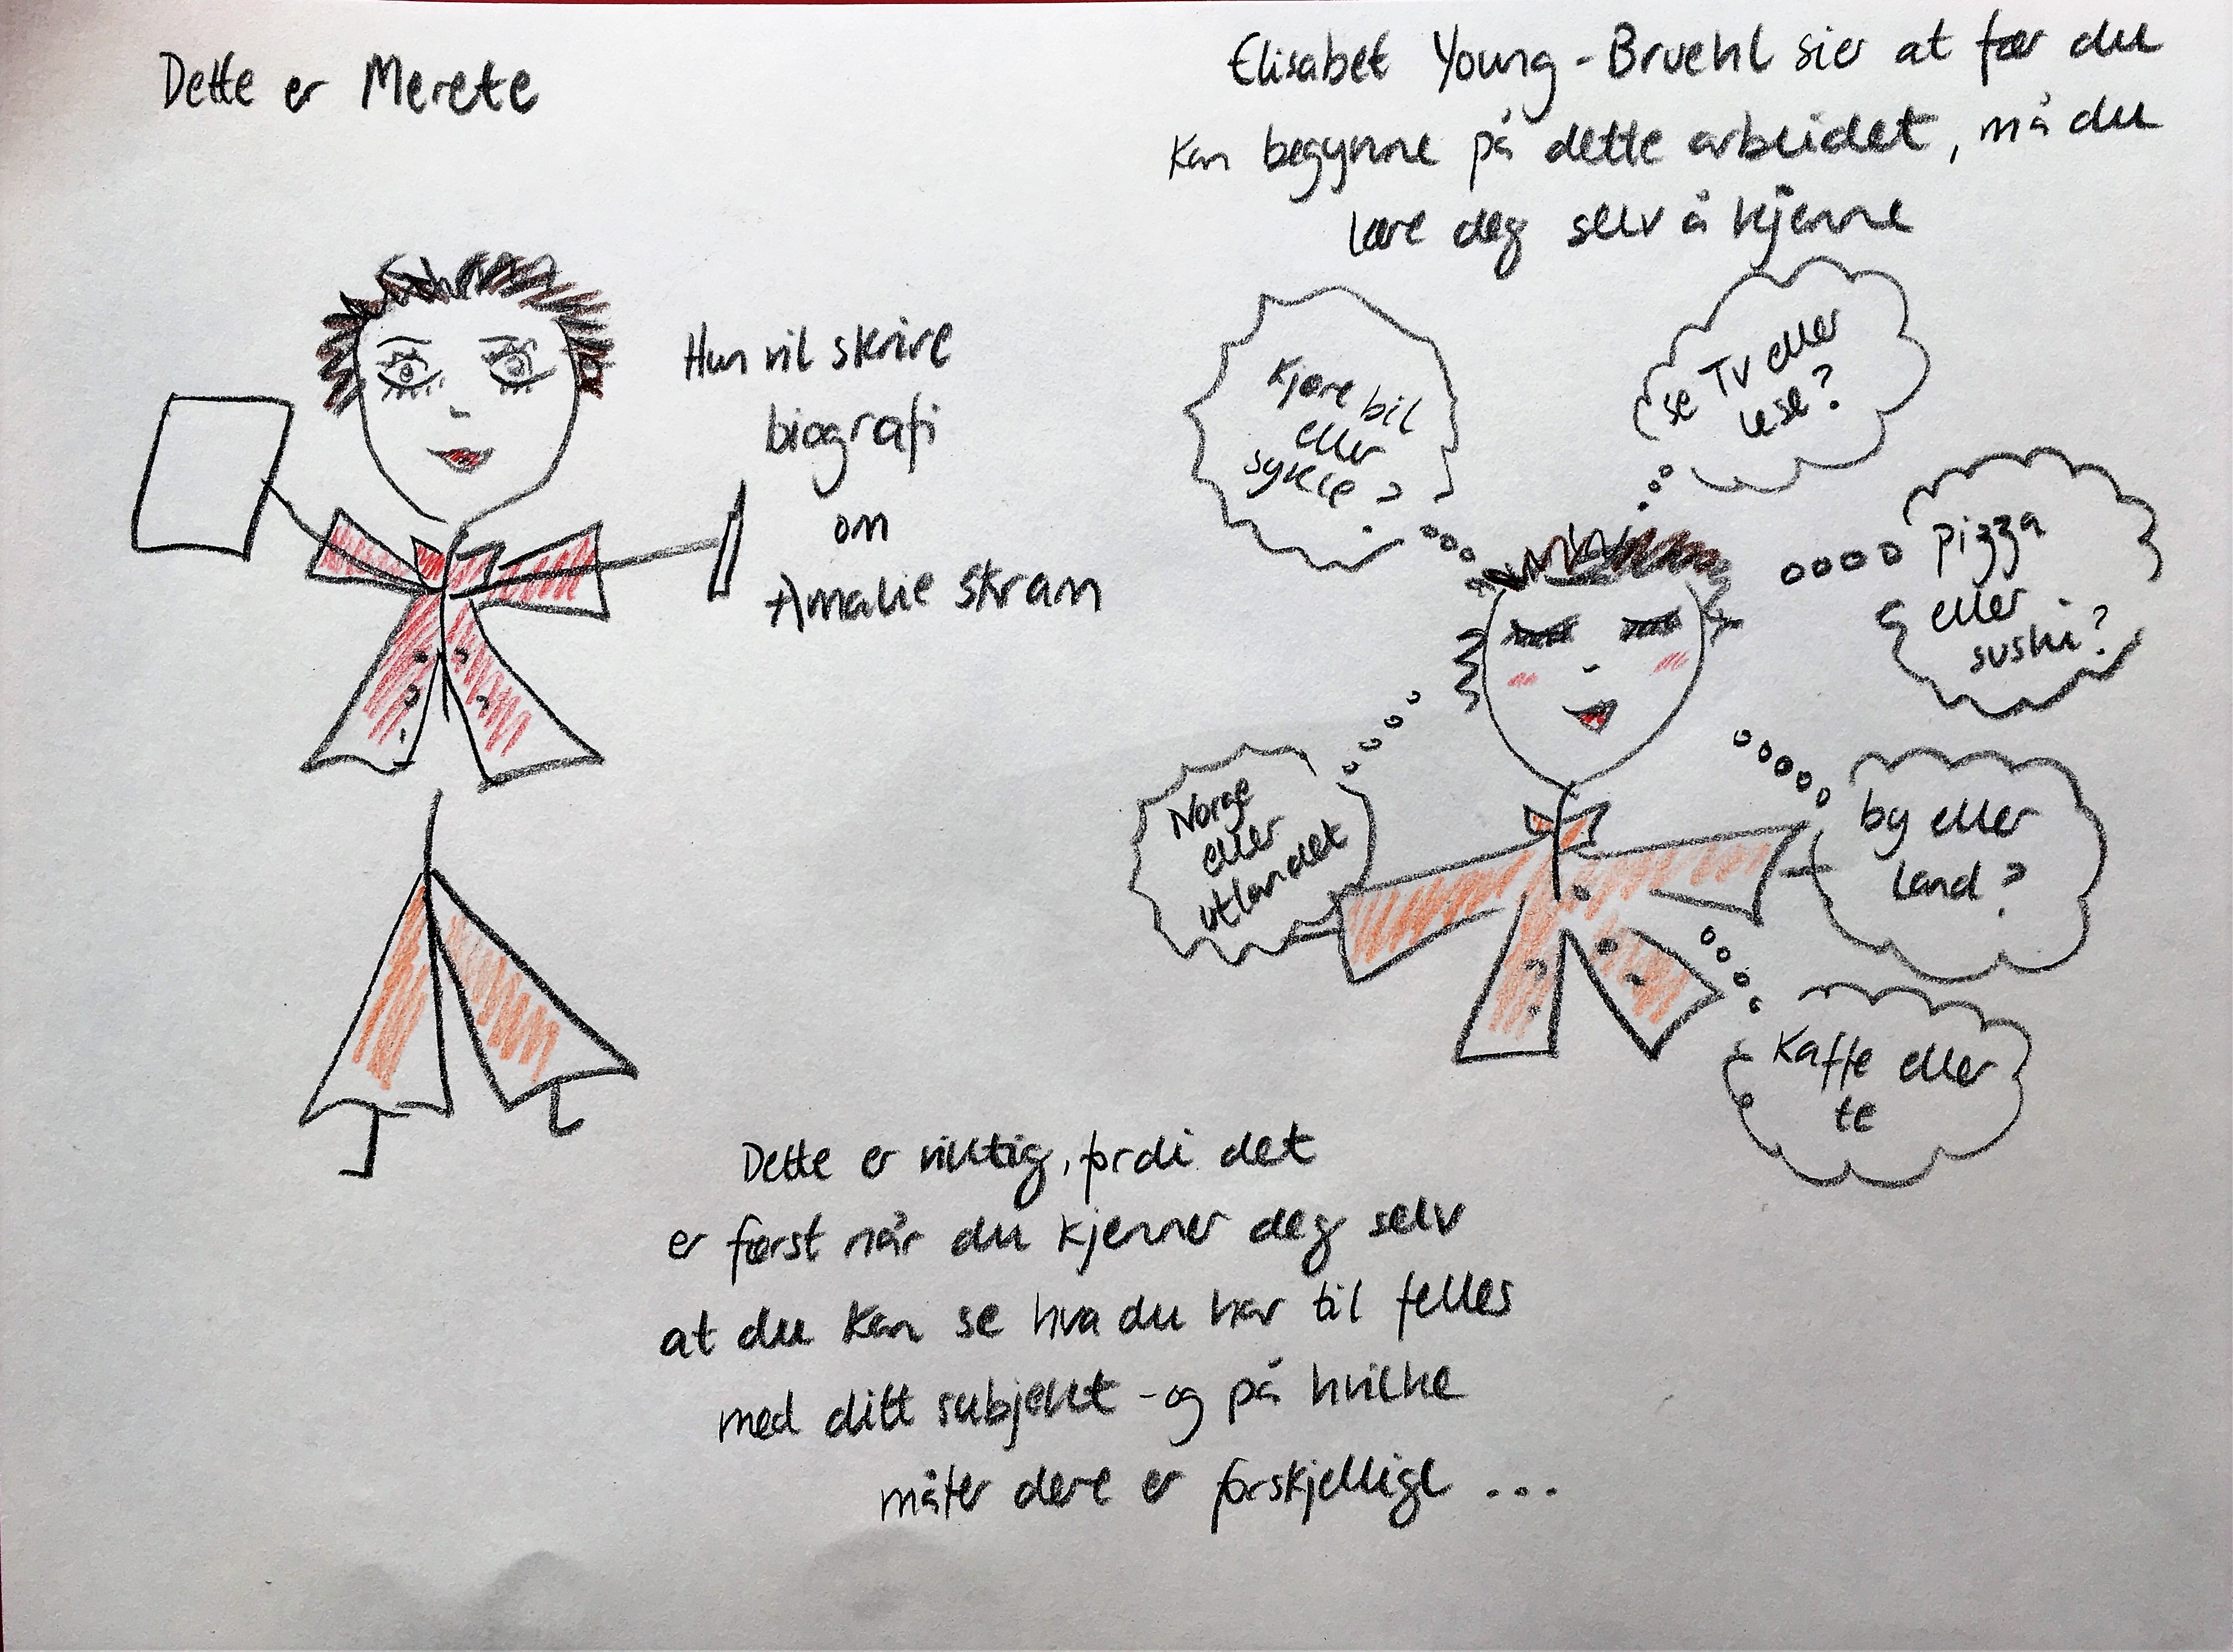 Dette er Merete
Hun vil skrive
biografi
om
Amalie Skram
Elisabet Young-Bruehl sier at før du
kan begynne på dette arbeidet, må du
lære deg selv å kjenne
Kjøre bil
eller
sykle?
se TV eller
lese?
pizza
eller
sushi?
Norge
eller
utlandet
by eller
land?
Kaffe eller
te
Dette er viktig, fordi det
er først når du kjenner deg selv
at du kan se hva du har til felles
med ditt subjekt - og på hvilke
måter dere er forskjellige ...